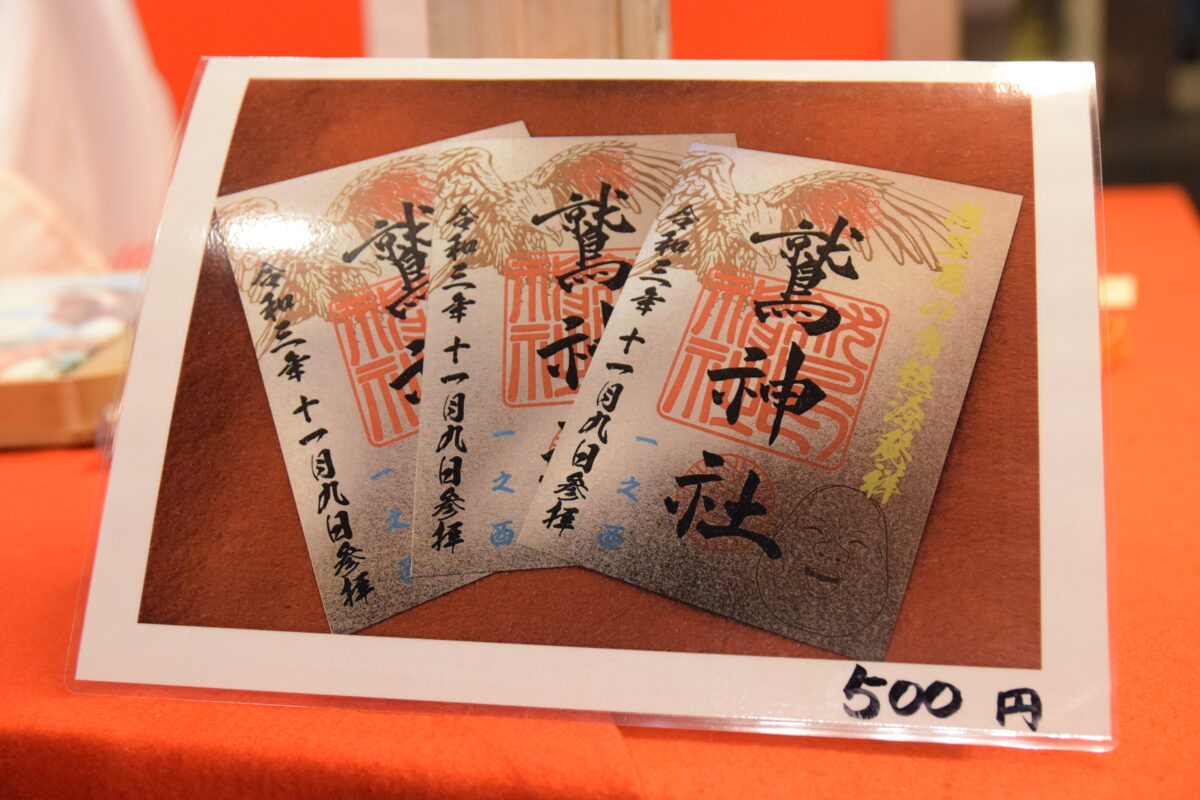 鷲神社
令和三年十一月九日参拝
一之
鷲神
令和三年十一月九日參拝
一之酉
鷲神社
令和三年十一月九日参拝
一之酉
500円